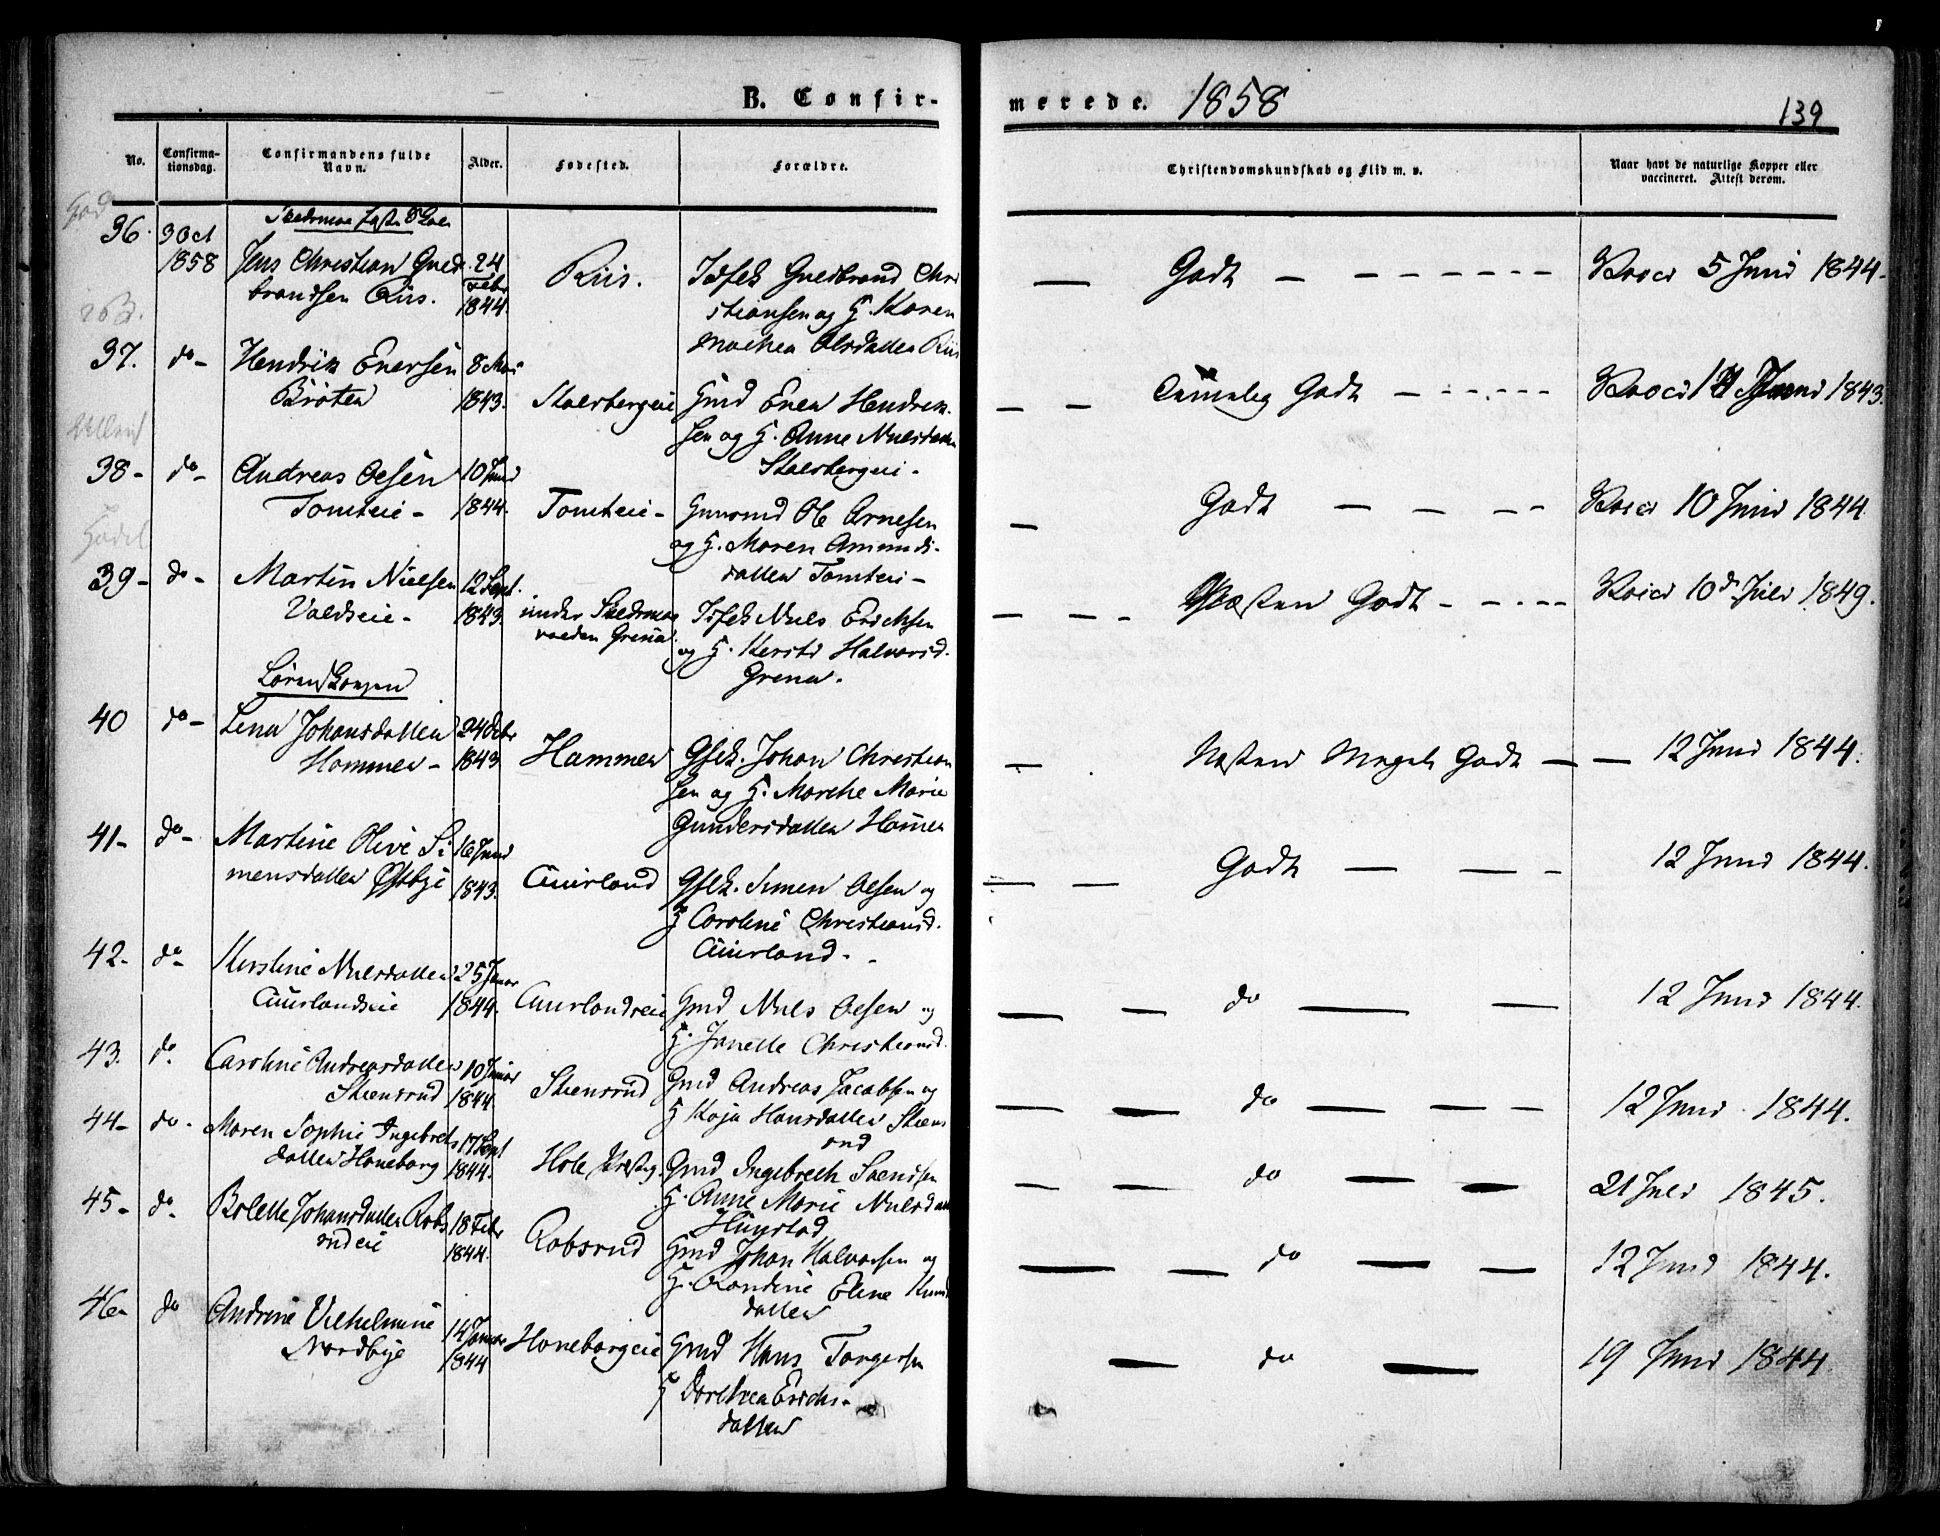 B. Confir-
merede. 1858
139
No.
Confirma-
tionsdag.
Confirmandens fulde
Navn.
Alder.
Fødested.
Forældre.
Christendomskundskab og Flid m. v.
Naar havt de naturlige Kopper eller
vaccineret. Attest derom.
36. 3 Oct
1858
Jens Christian Guld-
brandsen Riis.
24
1844.
Riis.
Guldbrand Chri
stiansen og H. Karen
Mathea Olsdatter Riis
Godt
Vacci 5 Juni 1844.
37. do
Hendrik Evensen
Bröten
8 Mai
1843.
Stalsbergeie
Gmd Even Hendrik-
sen og H. Anne Nielsdatter
Stalsbergeie
Temelig Godt
Vacci Juni 1843.
38 - do -
Andreas Olsen
Tomteie -
10 Juni
1844.
Tomteie -
Gmd Ole Arnesen
og H. Maren Amunds-
datter Tomteie -
Godt
Vacci 10 Juni 1844
39 - do -
Martin Nielsen
Valdseie -
12 Sept.
1843.
under Skedsmo
Grena
Niels Erichsen
og H. Kersti Halvorsd.
Grena.
Næsten Godt
Vacci 10de Juli 1849.
Lørenskogen
40 do -
Lena Johansdatter
Hammer -
24 Debr
1843
Hammer
Johan Christian
sen og H. Marthe Marie
Gundersdatter Hammer
Næsten Meget Godt
12 Juni 1844.
41 - do -
Martine Olive Si
mensdatter Østbye
16 Juni
1843.
Cuurland
Simen Olsen og
H Caroline Christiansd.
Cuurland.
Godt
12 Juni 1844.
42 - do
Kirstine Nielsdatter
Cuurlandseie
25 Januar
1844.
Cuurlandseie
Gmd Niels Olsen og
H. Janette Christiansd.
do
12 Juni 1844.
43. do.
Caroline Andreasdatter
Steensrud
10 Januar
1844.
Steensrud
Gmd Andreas Jacobsen og
H Kaja Hansdatter Steens
rud
do
12 Juni 1844.
44 - do.
Maren Sophie Ingebrets
datter Haneborg
17 Sept
1844.
Hole Præstg.
Gmd Ingebreth Svendsen
H. Anne Marie Nielsdatter
do
21 Juli 1845.
45 - do.
Bolette Johansdatter Robs
rudeie
18 Febr
1844.
Robsrud
Gmd Johan Halvorsen og
H. Randine Eline Knud
datter
do
12 Juni 1844.
46. do
Andrine Vilhelmine
Nordbye
14 Januar
1844
Haneborgeie
Gmd Hans Torgersen
H Dorthea Erichs-
datter
do
19 Juni 1844.